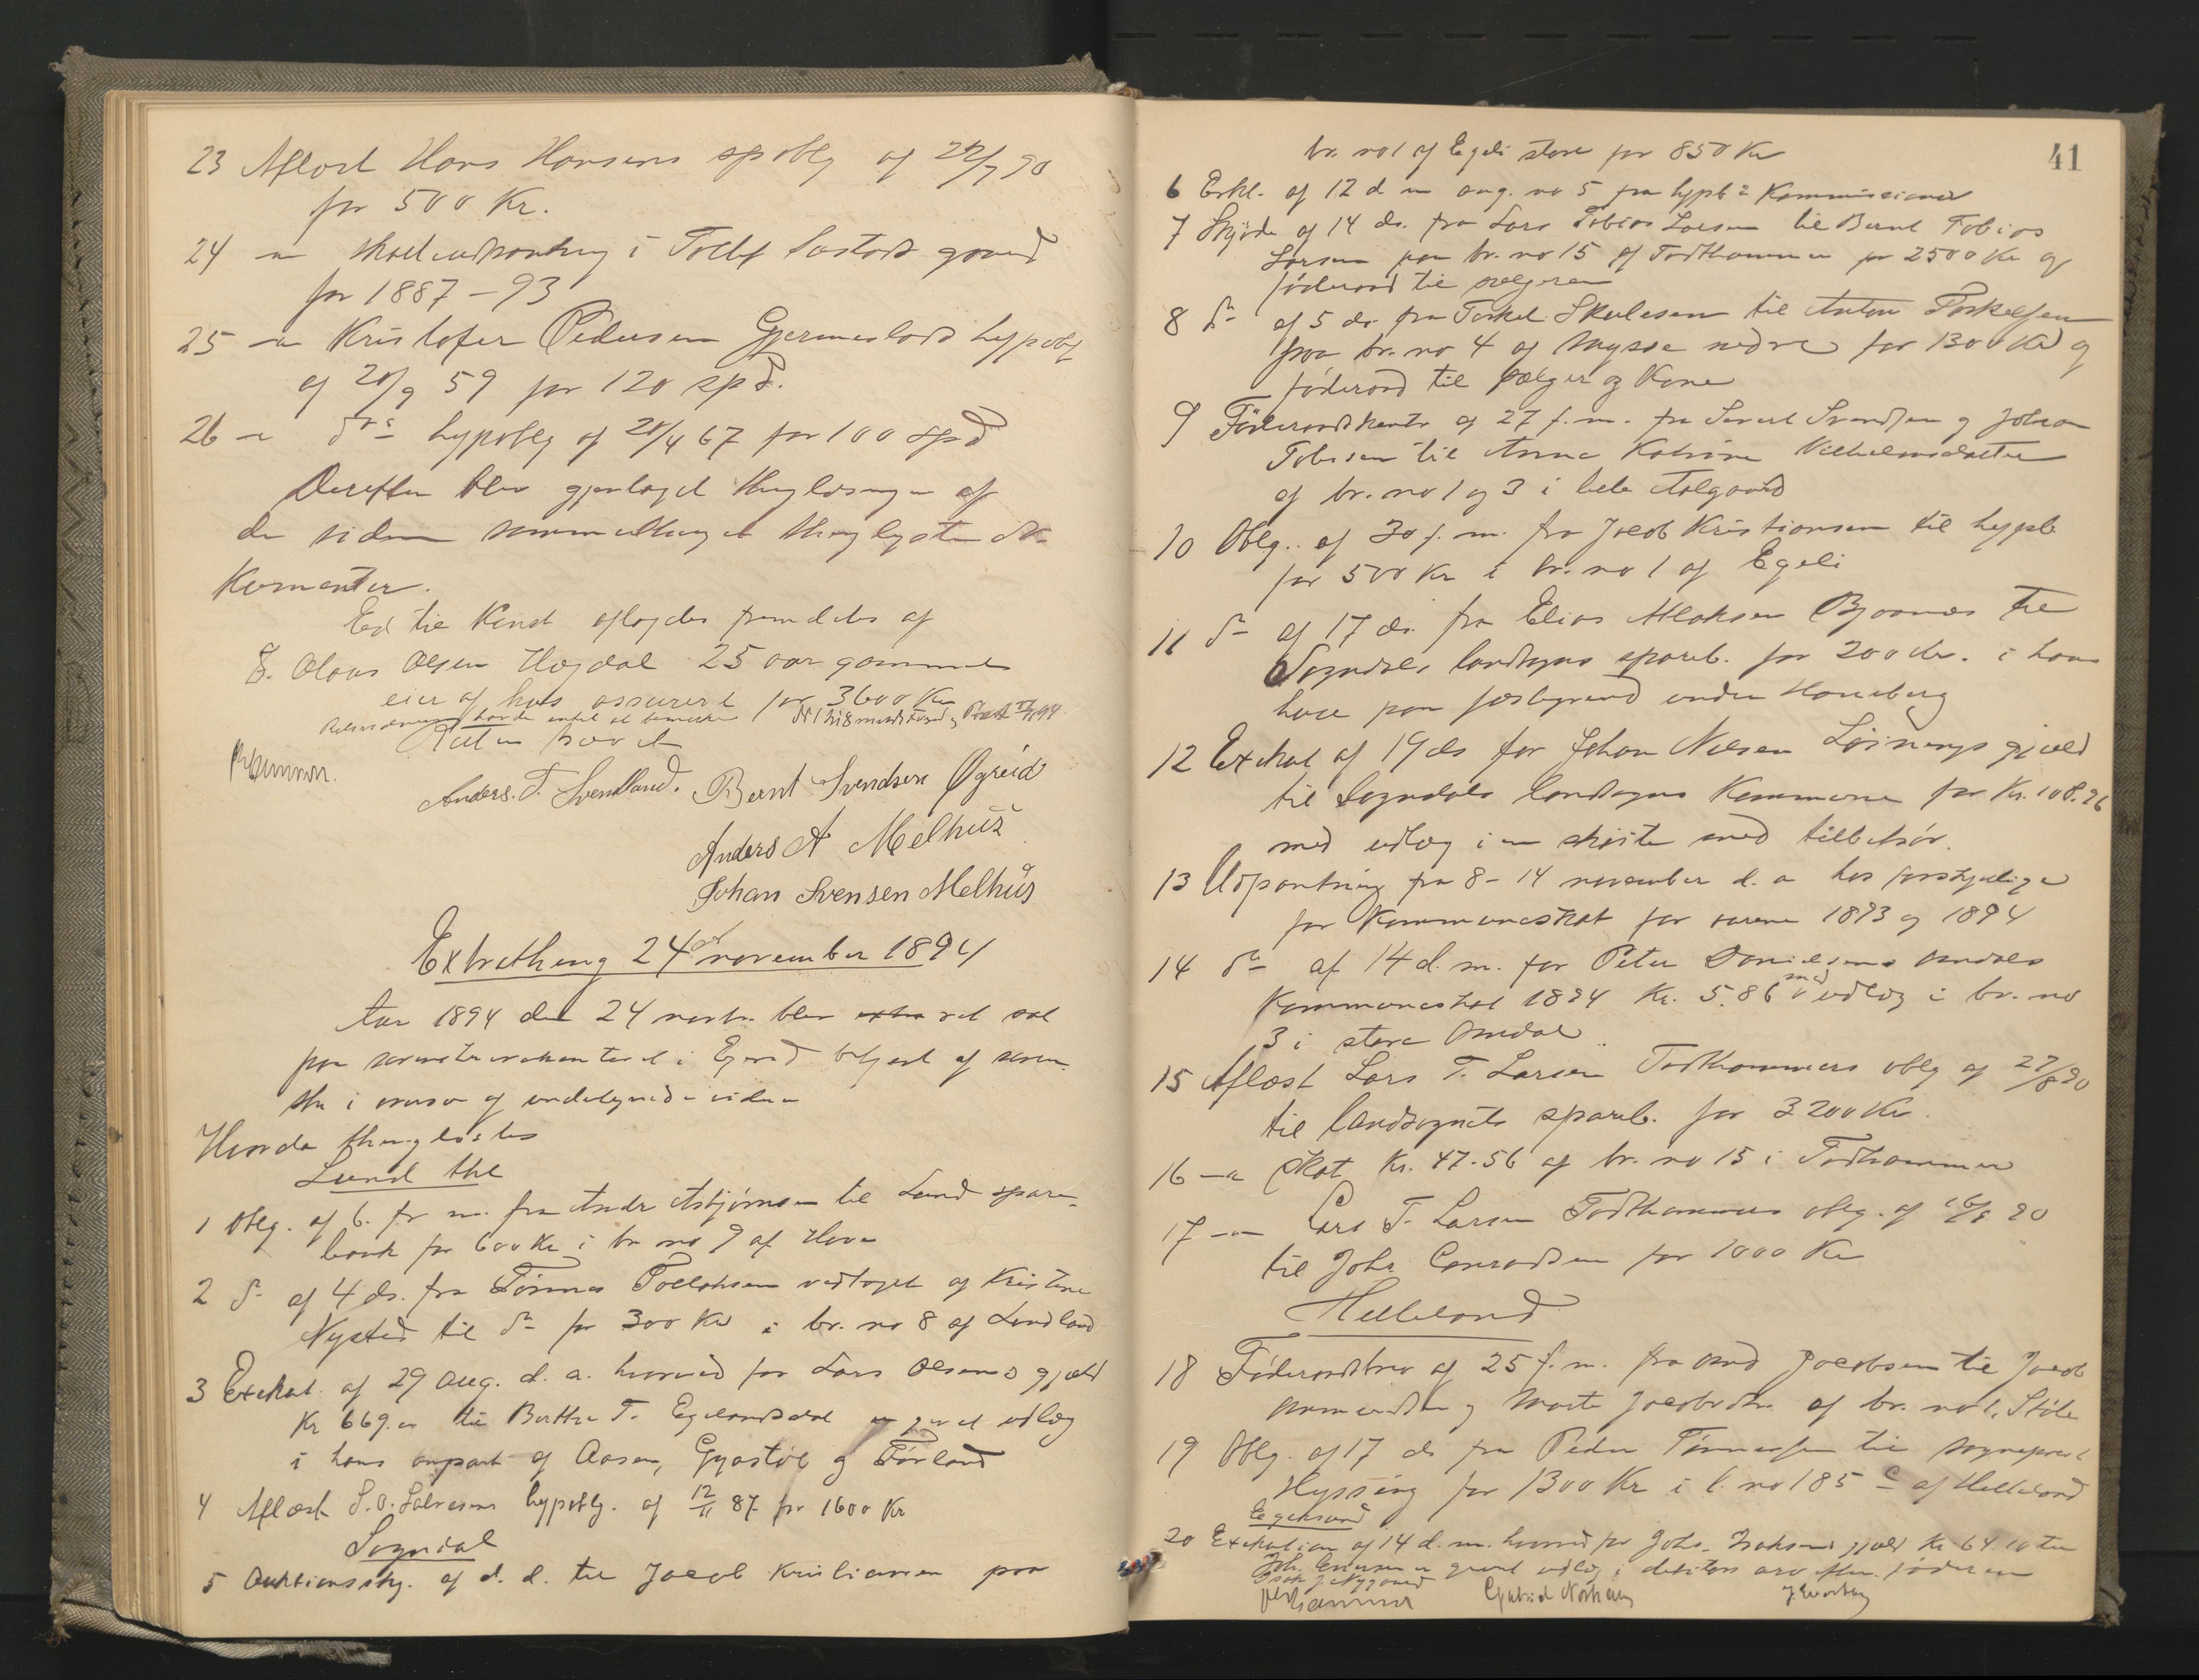 23 Aflæst Hans Hansens sp oblg af 22/7 90
for 500 Kr.
24 — skatteudpantning i gaard
for 1887–93
25 — Kristofer Pedersen Gjermestads hypobl
af 20/9 59 for 120 spd.
26 — ds hypoblg af 20/4 67 for 100 spd
Derefter blev gjentaget thinglæsningen af
de siden sommerthinget thinglyste do-
kumenter.
Ed til Kand aflagdes fremdeles af
8. Olaus Olsen Hægdal 25 aar gammel
eier af hus assureret for 3600 Kr
Retten hævet
Anders. T. Svendland. Bernt Svendsen Øgreid
Anders A Melhus
Johan Svensen Melhus
Extrathing 24de november 1894
Aar 1894 den 24 novbr. blev extra ret sat
paa sorenskriverkontoret i Egersd betjent af soren-
skr i overvær af undertegnede vidner
Hvorda thinglæstes
Lund thl
1 Oblg. af 6. fr m. fra Andr Asbjørnsen til Lund spare-
bank for 600 Kr i br no 9 af Hove
2 do af 4 ds. fra Tønnes Tollaksen vedtaget af Kristine
Nysted til do for 300 Kr i br. no 8 af Lindland
3 Exekut. af 29 aug. d. a. hvorved for Lars Olsens gjæld
Kr 669. til Berthe T. Egelandsdal er gjort udlæg
i hans anpart af Aasen, Gyastøl og Førland
4 Aflæst S. O. Salvesens hypoblg. af 12/11 87 for 1600 Kr
Sogndal
5 Auktionsskj. af d. d. til Jacob Kristiansen paa
41
br. no 1 af Egeli store for 850 Kr
6 Erkl. af 12 d m ang. no 5 fra hypb Kommissionær
7 Skjøde af 14 ds. fra Lars Tobias Larsen til Bernt Tobias
Larsen paa br. no 15 af Todthammer for 2500 Kr og
føderaad til sælgeren
8 do af 5 ds. fra Torkel Skulesen til Anton Torkelsen
paa br. no 4 af Mysse nedre for 1300 Kr og
føderaad til sælger og Kone
9 Føderaadskontr af 27 f. m. fra Sivert Svendsen og Johan
Tobisen til Anna Katrine Vilhelmsdatter
af br. no 1 og 3 i lille Aalgaard
10 Oblg. af 30 f. m. fra Jacob Kristiansen til hypb
for 500 Kr i br. no 1 af Egeli
11 do af 17 ds. fra Elias Aslaksen Bjaanes til
Sogndals landsogns spareb. for 200 Kr. i hans
hus paa fæstegrund under Haneberg
12 Exekut af 19 ds for Johan Nilsen Løsnings gjæld
til Sogndals landsogns Kommune for Kr. 108.26
med udlæg i en skøite med tilbehør.
13 Udpantning fra 8–14 november d. a hos forskjellige
for Kommuneskat for aarene 1893 og 1894
14 do af 14 d. m. for Peter Danielsens Omdals
Kommuneskat 1894 Kr. 5.86 med udlæg i br. no
3 i store Omdal
15 Aflæst Lars T. Larsen Todthammers oblg af 27/8 90
til landsognets spareb. for 3200 Kr.
16 — Skat Kr. 47.56 af br. no 15 i Todhammer
17 — Lars T. Larsen Todthammers oblg. af 16/8 90
til Johs Conradsen for 1000 Kr
Helleland
18 Føderaadsbrev af 25 f. m. fra And Jacobsen til Jacob
og Marte Jacobsdtr. af br. no 1, Støle
19 Oblg. af 17 ds fra Peder Tønnessen til sogneprest
Hyssing for 1300 Kr i l. no 185 c af Helleland
Egersund
20 Exekution af 14 d. m. hvorved for Johs. Isaksens gjæld Kr 64.10 til
Joh. er gjort udlæg i debitors arv efter faderen
Isak J. Nygaard
Gabriel